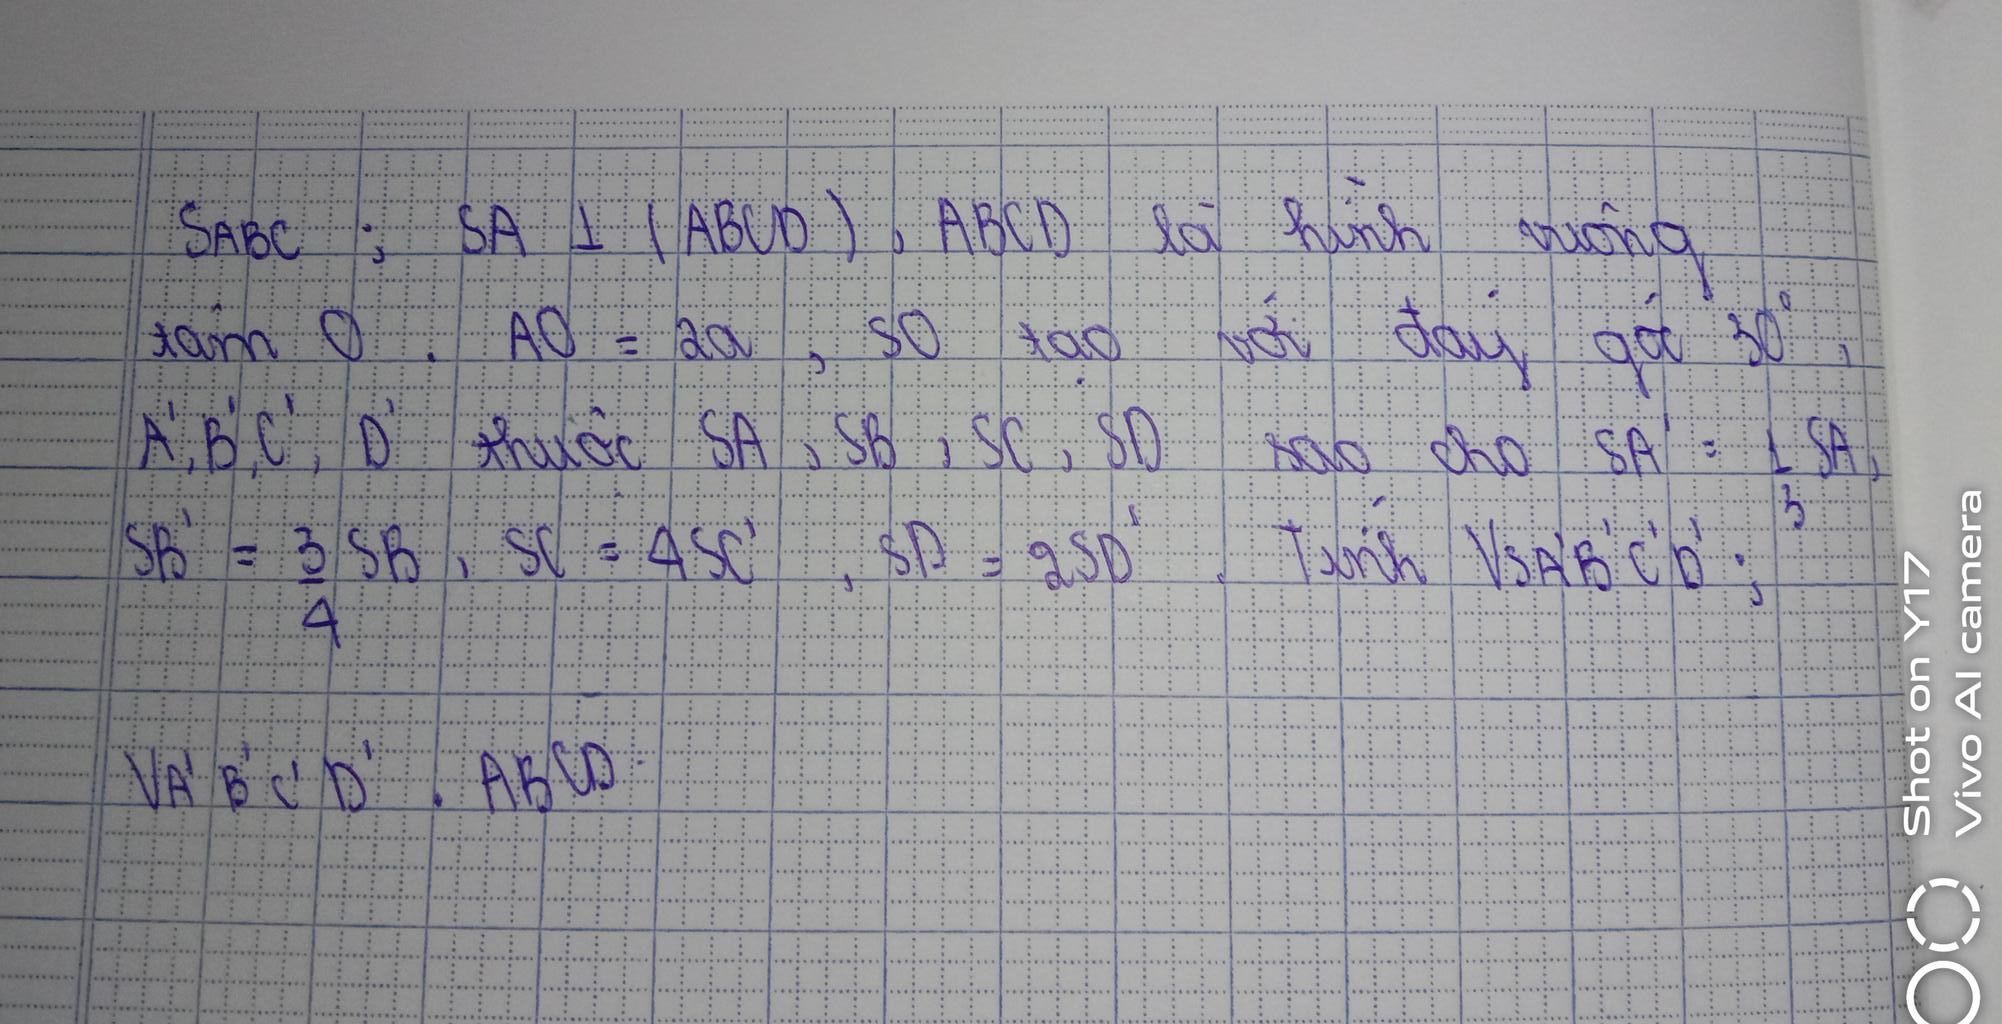 SABC ; SA ⊥ (ABCD), ABCD là hình vuông
tâm O. AO = 2a, SO tạo với đáy góc 30°,
A', B', C', D' thuộc SA, SB, SC, SD sao cho SA' = 1/3 SA,
SB' = 3/4 SB, SC = 4SC', SD = 2SD'. Tính VSA'B'C'D' ;
VA'B'C'D'. ABCD.
Shot on Y17
Vivo AI camera